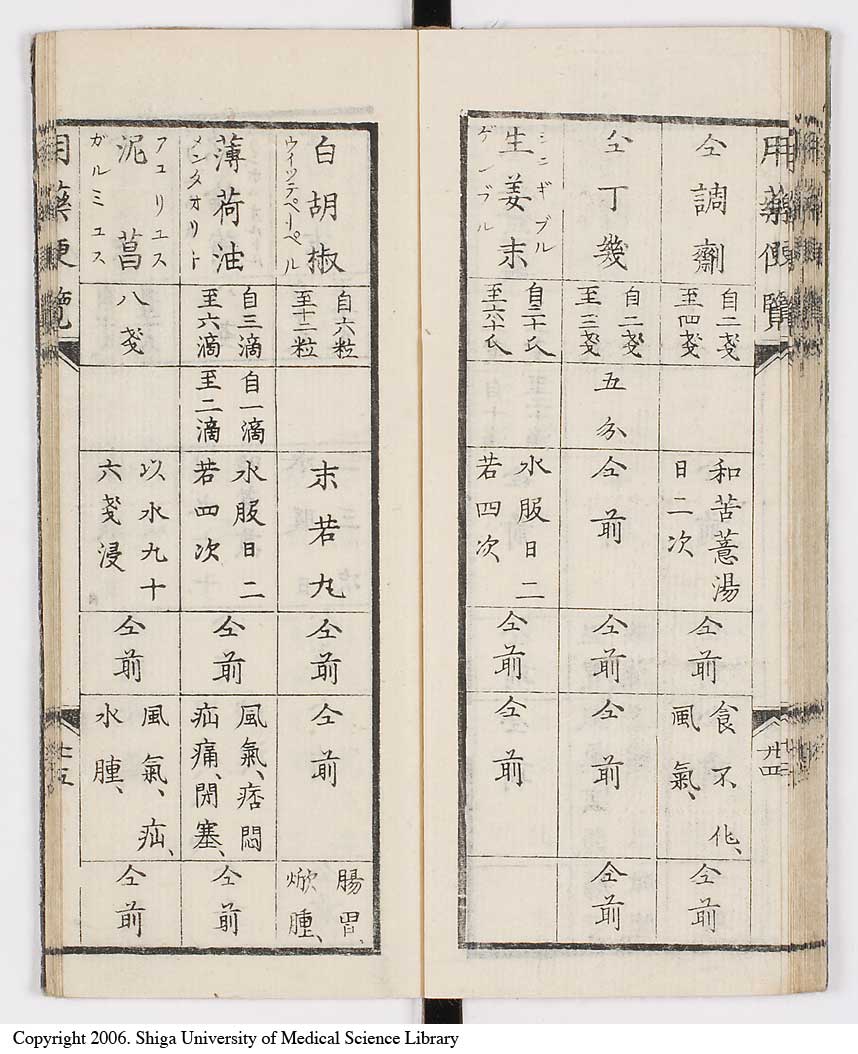 用藥便覽
仝調劑
自二戔
至四戔
和苦薏湯
日二次
仝前
食不化、
風氣、
仝前
仝丁幾
自二戔
至三戔
五分
仝前
仝前
仝前
仝前
シンギブル
生姜末
ゲンブル
自二十氏
至六十氏
水服日二
若四次
仝前
仝前
白胡椒
ウィッテペーペル
自六粒
至十二粒
末若丸
仝前
仝前
腸胃、
焮腫、
薄荷油
メンタオリト
自三滴
至六滴
自一滴
至二滴
水服日二
若四次
仝前
風氣、痞悶
疝痛、閉塞、
仝前
アコリユス
泥菖
ガルミユス
八戔
以水九十
六戔浸
仝前
風氣、疝、
水腫、
仝前
用藥便覽
Copyright 2006. Shiga University of Medical Science Library